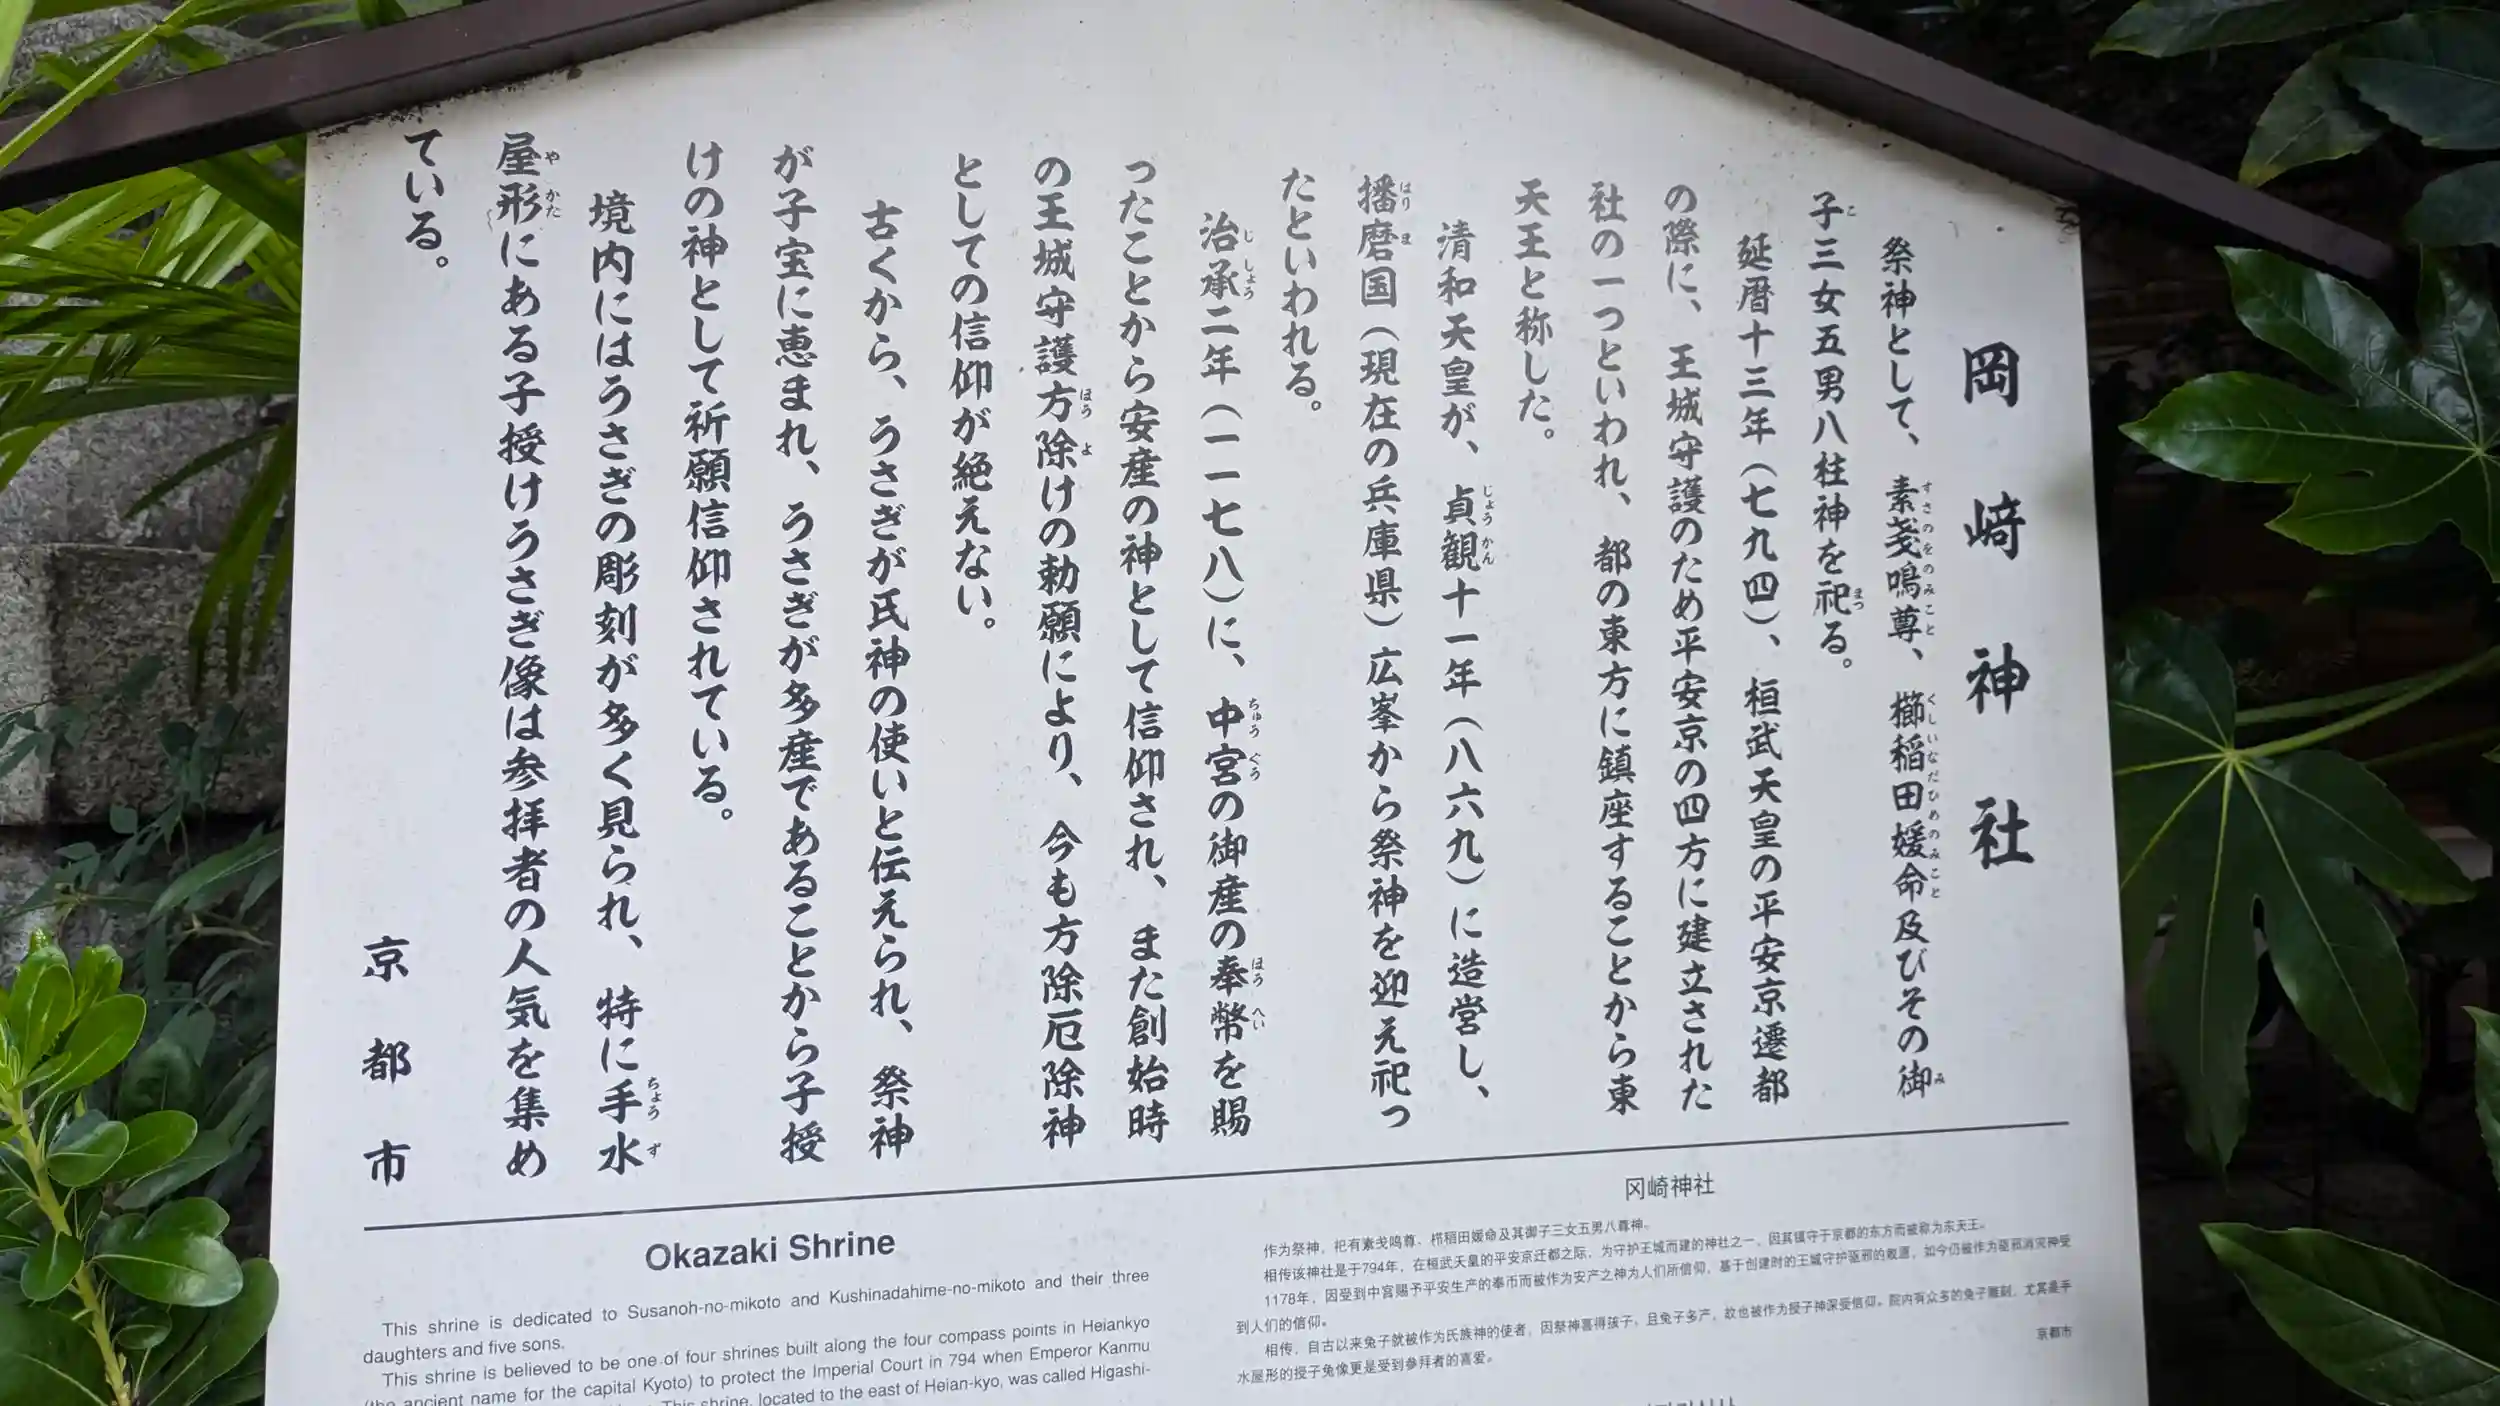 岡﨑神社
祭神として、素戔鳴尊、櫛稲田媛命及びその御
子三女五男八柱神を祀る。
延暦十三年（七九四）、桓武天皇の平安京遷都
の際に、王城守護のため平安京の四方に建立された
社の一つといわれ、都の東方に鎮座することから東
天王と称した。
清和天皇が、貞観十一年（八六九）に造営し、
播磨国（現在の兵庫県）広峯から祭神を迎え祀っ
たといわれる。
治承二年（一一七八）に、中宮の御産の奉幣を賜
ったことから安産の神として信仰され、また創始時
の王城守護方除けの勅願により、今も方除厄除神
としての信仰が絶えない。
古くから、うさぎが氏神の使いと伝えられ、祭神
が子宝に恵まれ、うさぎが多産であることから子授
けの神として祈願信仰されている。
境内にはうさぎの彫刻が多く見られ、特に手水
屋形にある子授けうさぎ像は参拝者の人気を集め
ている。
京都市
Okazaki Shrine
This shrine is dedicated to Susanoh-no-mikoto and Kushinadahime-no-mikoto and their three
daughters and five sons.
This shrine is believed to be one of four shrines built along the four compass points in Heiankyo
(the ancient name for the capital Kyoto) to protect the Imperial Court in 794 when Emperor Kanmu
This shrine, located to the east of Heian-kyo, was called Higashi-
冈崎神社
作为祭神，祀有素戋鸣尊、栉稻田媛命及其御子三女五男八尊神。
相传该神社是于794年，在桓武天皇的平安京迁都之际，为守护王城而建的神社之一，因其镇守于京都的东方而被称为东天王。
1178年，因受到中宫赐予平安生产的奉币而被作为安产之神为人们所信仰，基于创建时的王城守护驱邪的敕愿，如今仍被作为驱邪消灾神受
到人们的信仰。
相传，自古以来兔子就被作为氏族神的使者，因祭神喜得孩子，且兔子多产，故也被作为授子神深受信仰。院内有众多的兔子雕刻，尤其是手
水屋形的授子兔像更是受到参拜者的喜爱。
京都市